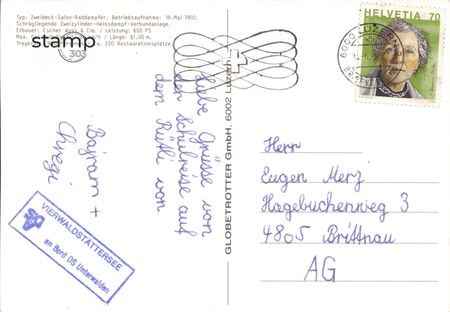 Typ: Zweideck-Salon-Raddampfer. Betriebsaufnahme: 18.Mai 1902.
Schrägliegende Zweizylinder-Heissdampf-Verbundanlage.
Erbauer: Escher Wyss & Cie. / Leistung: 650 PS
Länge: 61.00 m.
220 Restaurationsplätze.
stamp
303
HELVETIA 70
6000 LUZERN
GLOBETROTTER GmbH, 6002 Luzern
Liebe Grüsse von
der Schulreise auf
dem Rütli von
Bajram +
Chregi
VIERWALDSTÄTTERSEE
an Bord DS Unterwalden
Herr
Eugen Merz
Hagebuchenweg 3
4805 Brittnau
AG